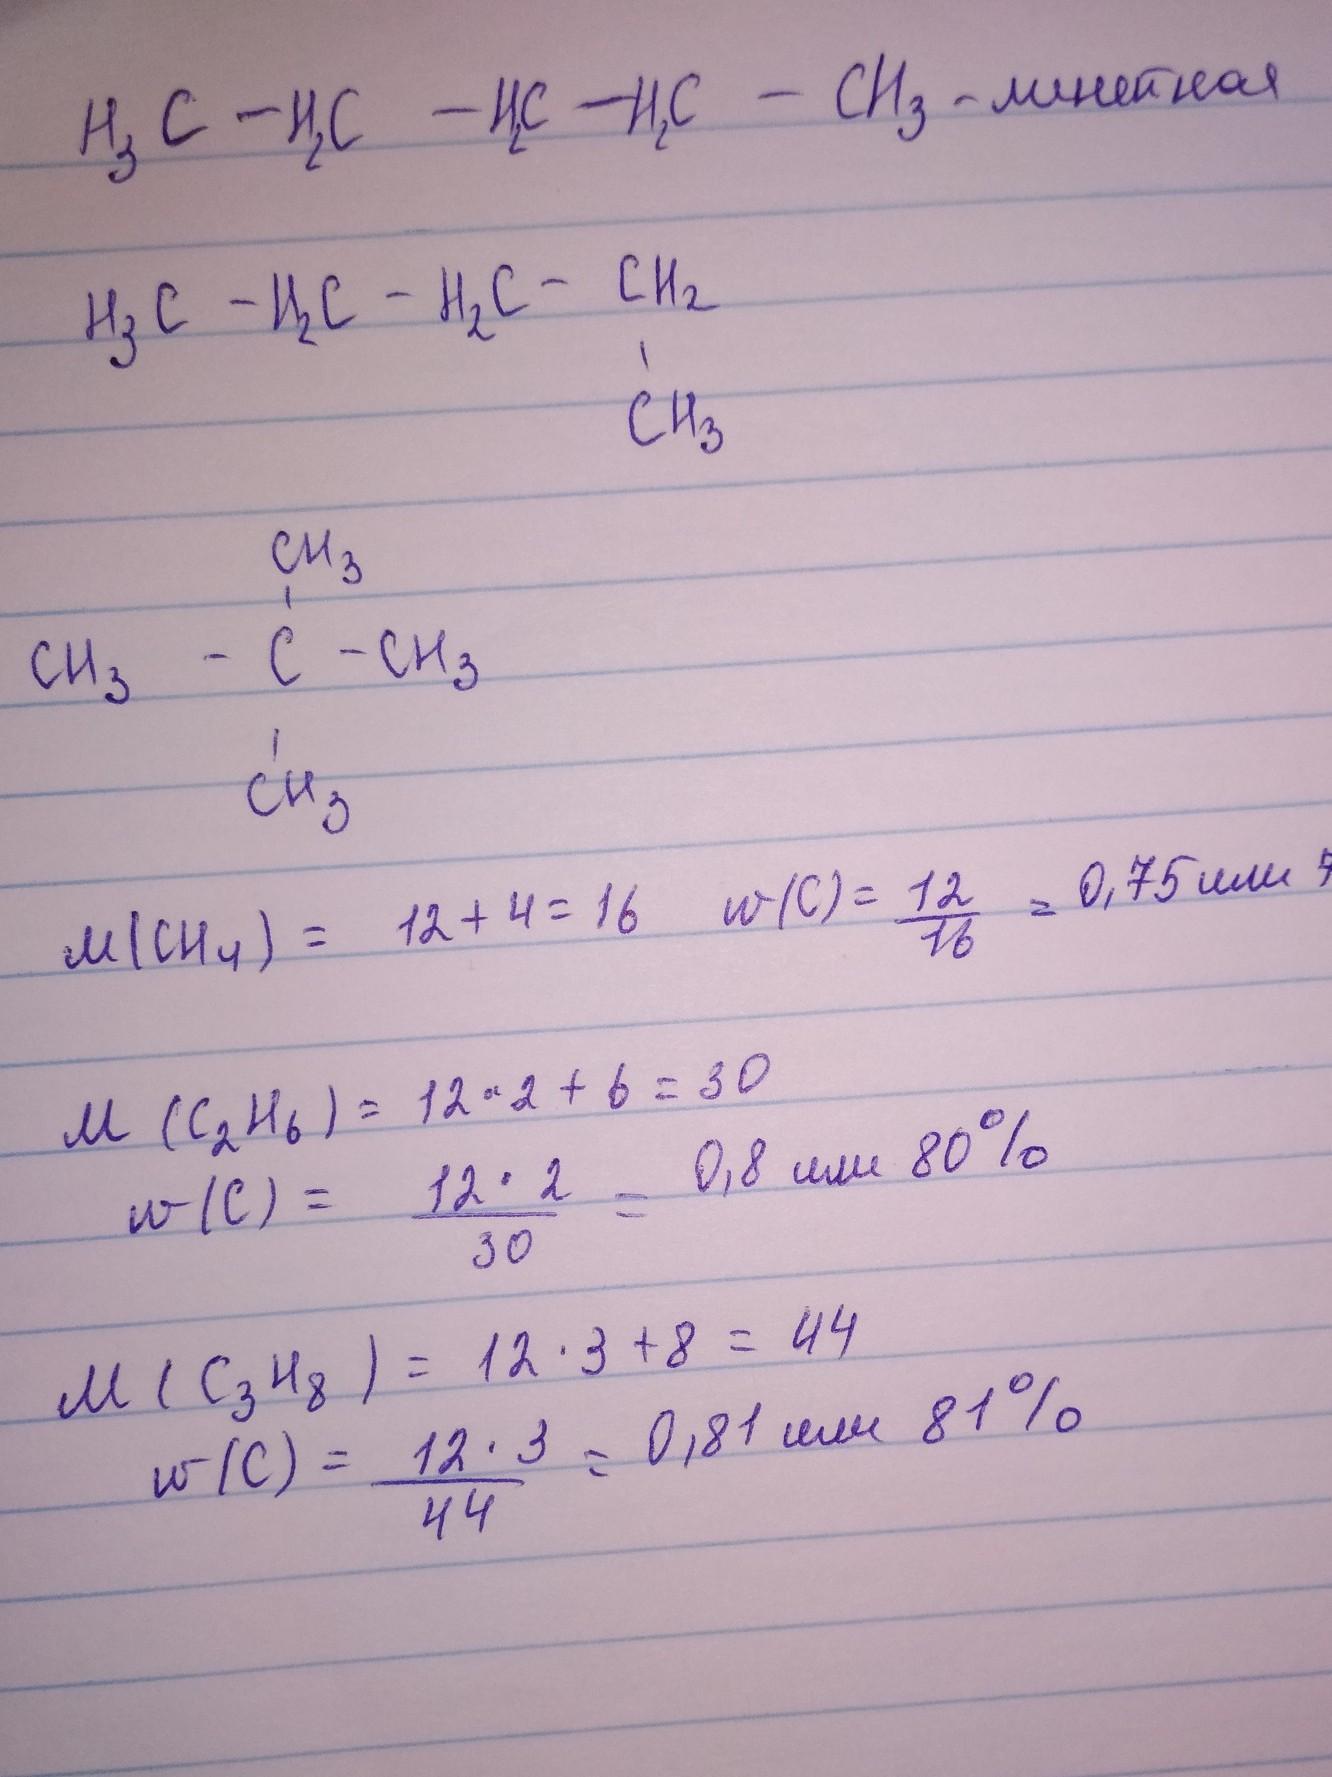 H₃C - H₂C - H₂C - H₂C - CH₃ - линейная
H₃C - H₂C - H₂C - CH₂
CH₃
CH₃
CH₃ - C - CH₃
CH₃
M(CH₄) = 12 + 4 = 16 w(C) = 12/16 = 0,75 или 7
M(C₂H₆) = 12 · 2 + 6 = 30
w(C) = 12 · 2/30 = 0,8 или 80%
M(C₃H₈) = 12 · 3 + 8 = 44
w(C) = 12 · 3/44 = 0,81 или 81%